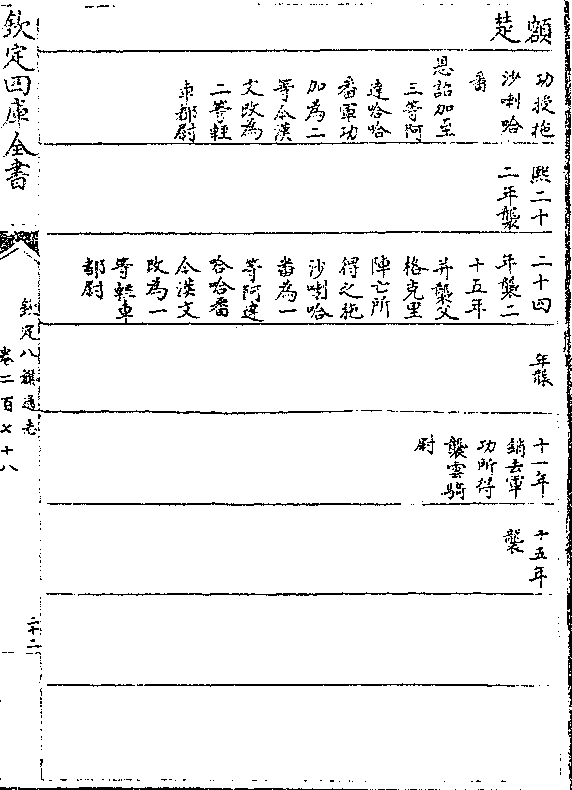 額
楚
功授拖
沙喇哈
番
恩詔加至
三等阿
達哈哈
番軍功
加為二
等今漢
文改為
二等輕
車都尉
熙二十
二年襲
二十四
年襲二
十五年
并襲父
格克里
陣亡所
得之拖
沙喇哈
番為一
等阿達
哈哈番
今漢文
改為一
等輕車
都尉
年襲
十一年
銷去軍
功所得
襲雲騎
尉
十五年
襲
欽定四庫全書
欽定八旗通志
卷二百七十八
二十二